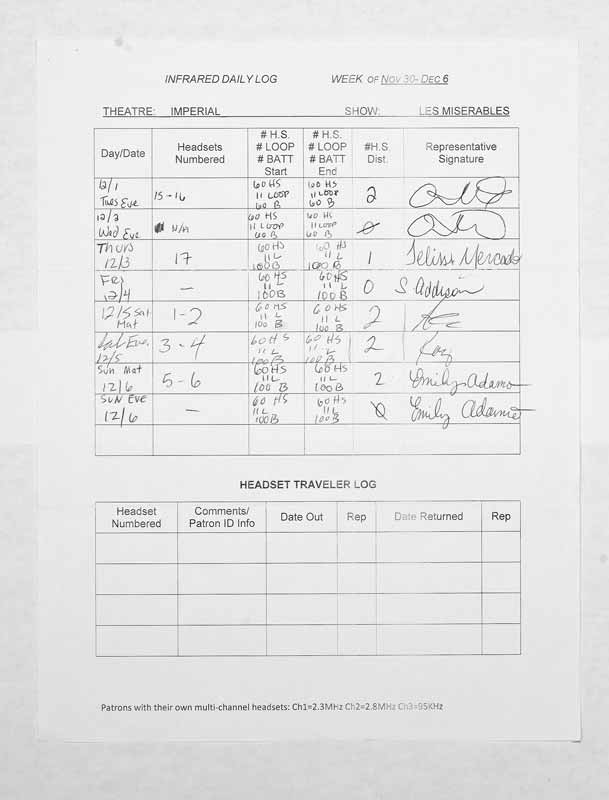 INFRARED DAILY LOG WEEK OF NOV 30- DEC 6
THEATRE: IMPERIAL SHOW: LES MISERABLES
Day/Date Headsets Numbered # H.S. # LOOP # BATT Start # H.S. # LOOP # BATT End #H.S. Dist. Representative Signature
12/1 Tues Eve 15-16 60 HS 11 LOOP 60 B 60 HS 11 LOOP 60 B 2
12/2 Wed Eve N/A 60 HS 11 LOOP 60 B 60 HS 11 LOOP 60 B 0
Thurs 12/3 17 60 HS 11 L 100 B 60 HS 11 L 100 B 1 Mercado
Fri 12/4 — 60 HS 11 L 100 B 60 HS 11 L 100 B 0 S Addison
12/5 Sat Mat 1-2 60 HS 11 L 100 B 60 HS 11 L 100 B 2
Sat Eve. 12/5 3-4 60 HS 11 L 100 B 60 HS 11 L 100 B 2
Sun Mat 12/6 5-6 60 HS 11 L 100 B 60 HS 11 L 100 B 2 Emily Adamo
Sun Eve 12/6 — 60 HS 11 L 100 B 60 HS 11 L 100 B 0 Emily
HEADSET TRAVELER LOG
Headset Numbered Comments/ Patron ID Info Date Out Rep Date Returned Rep
Patrons with their own multi-channel headsets: Ch1=2.3MHz Ch2=2.8MHz Ch3=95KHz